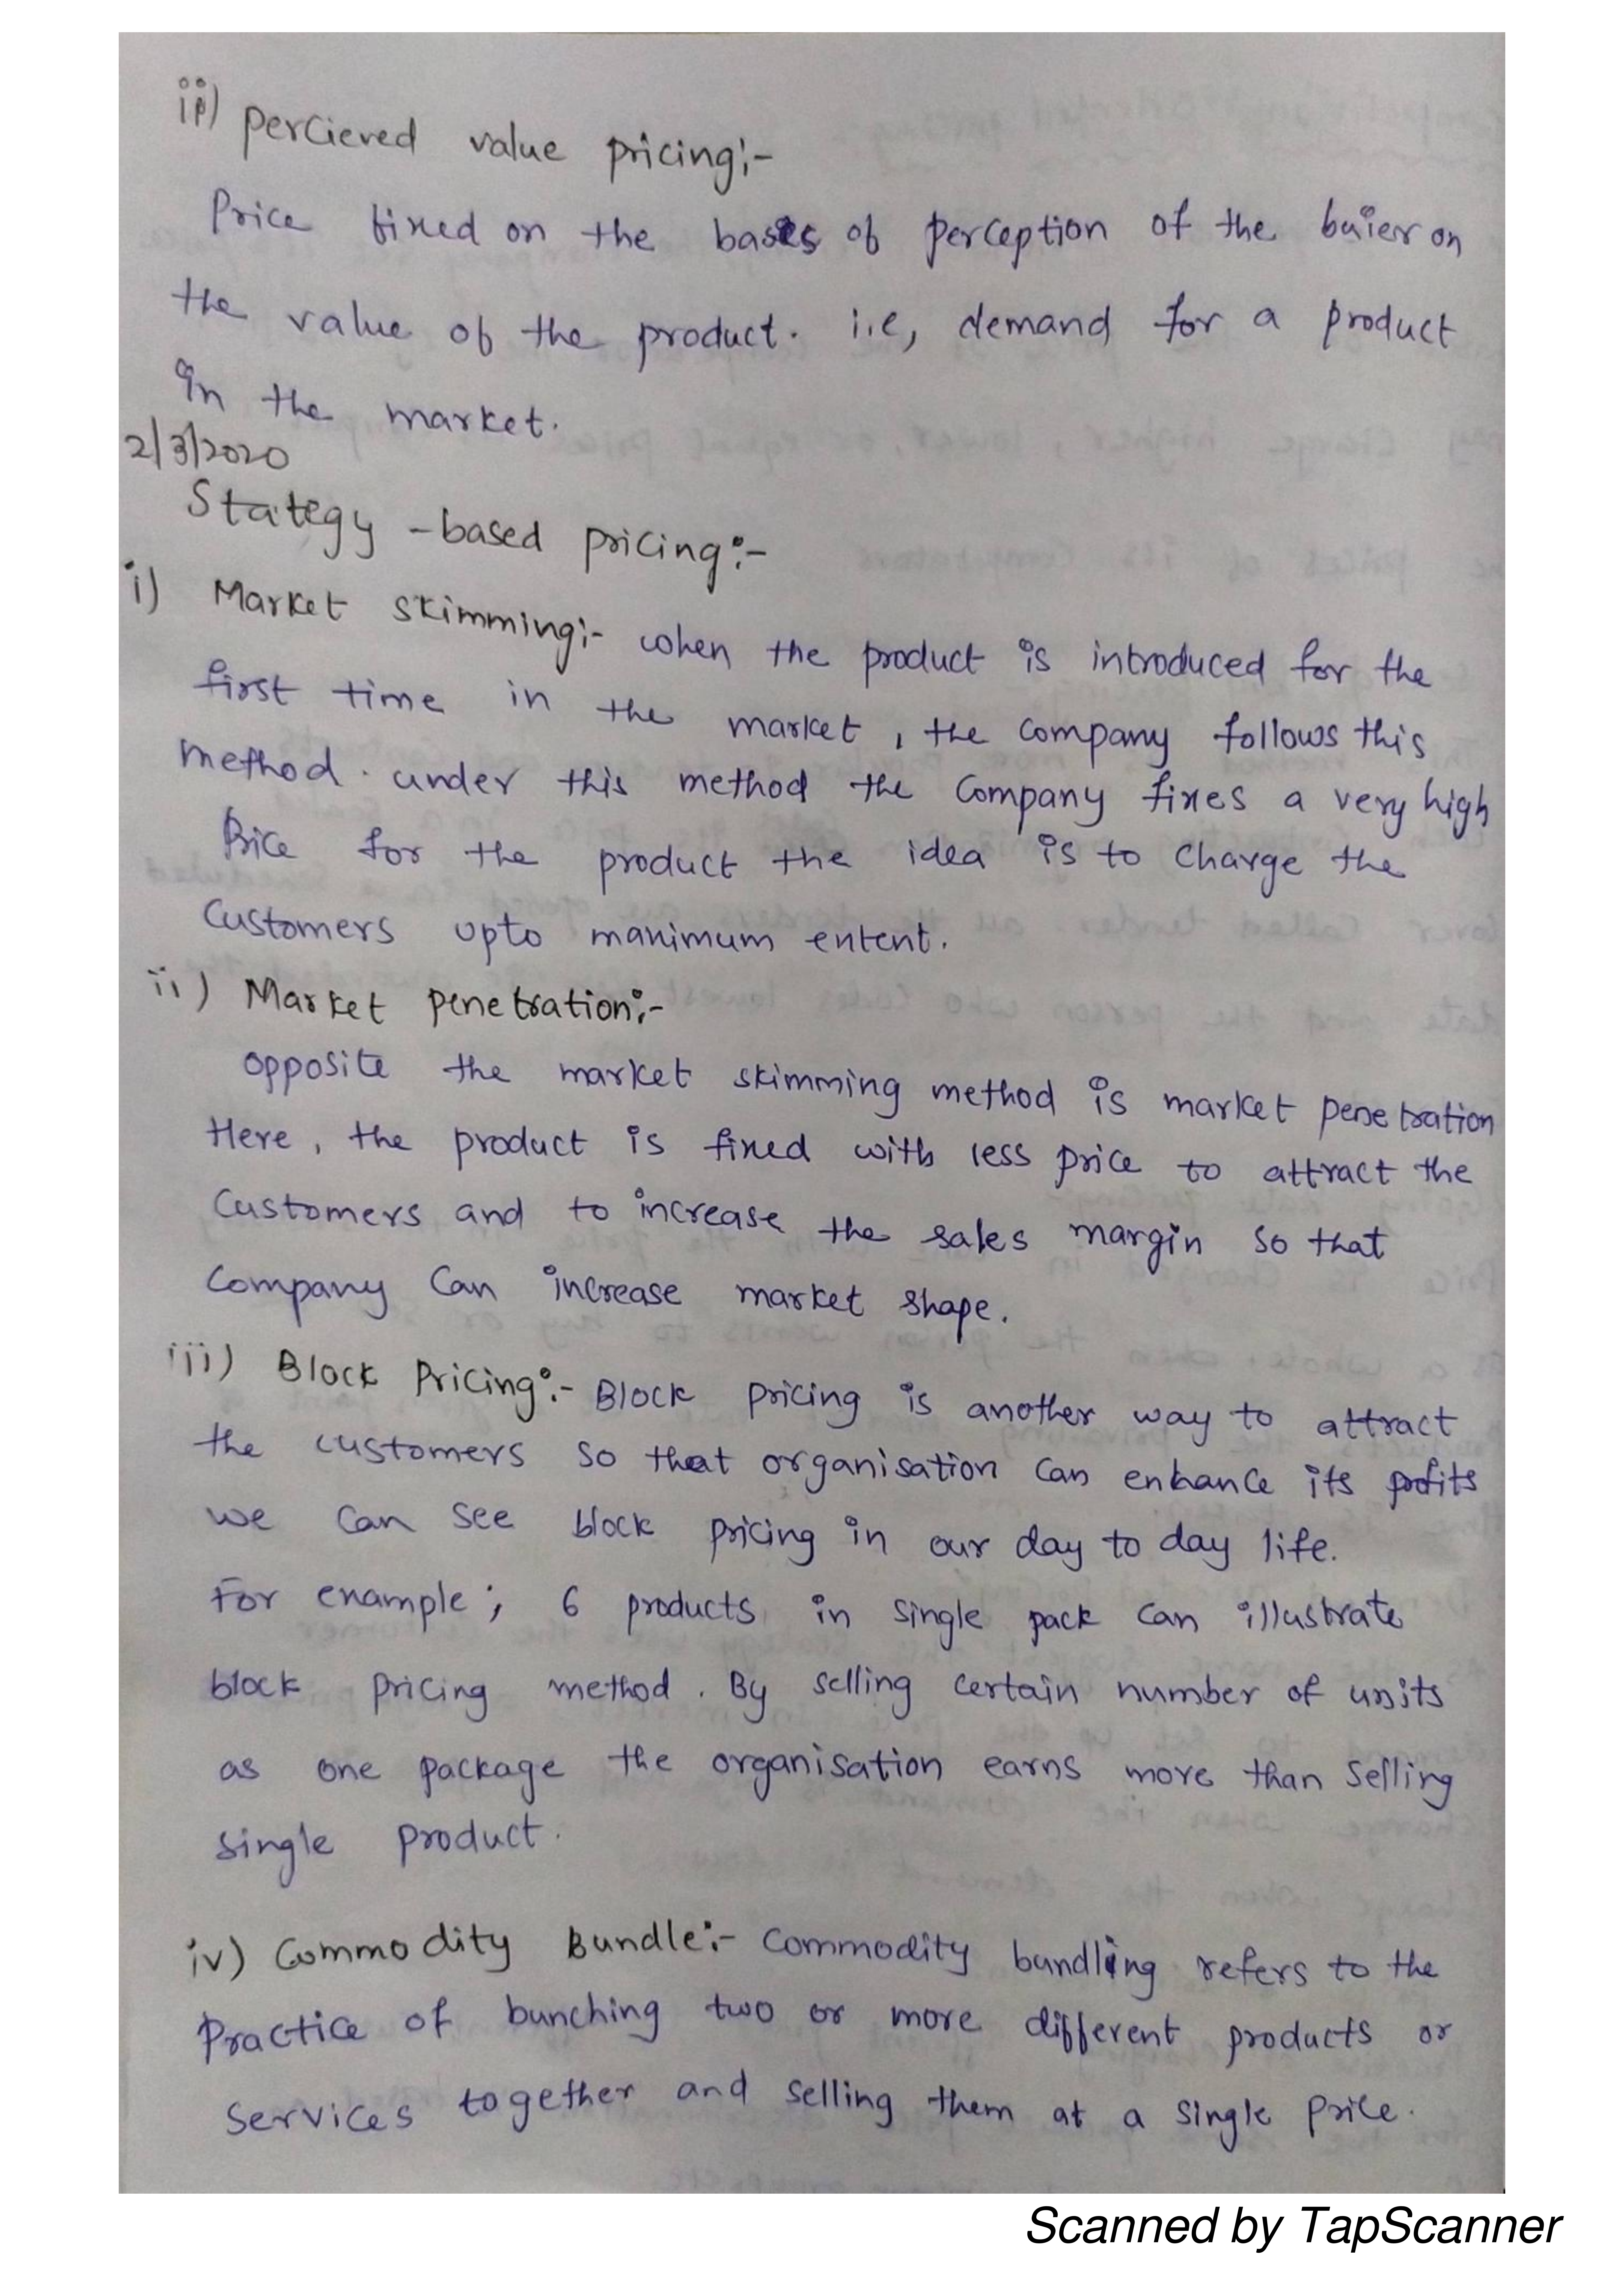 ii) perciered value pricing:-
Price fixed on the basis of perception of the buier on
the value of the product. i.e, demand for a product
in the market.
2/3/2020
Stategy -based pricing:-
i) Market skimming:- when the product is introduced for the
first time in the market, the company follows this
method. under this method the company fixes a very high
Price for the product the idea is to charge the
Customers upto maximum extent.
ii) Market penetration:-
opposite the market skimming method is market penetration
Here, the product is fixed with less price to attract the
Customers and to increase the sales margin so that
Company Can increase market shape.
iii) Block Pricing:- Block pricing is another way to attract
the customers so that organisation can enhance its profits
we can see block pricing in our day to day life.
For example; 6 products in single pack can illustrate
block pricing method. By selling certain number of units
as one package the organisation earns more than selling
single product.
iv) Commodity Bundle:- Commodity bundling refers to the
Practice of bunching two or more different products or
Services together and selling them at a single price.
Scanned by TapScanner